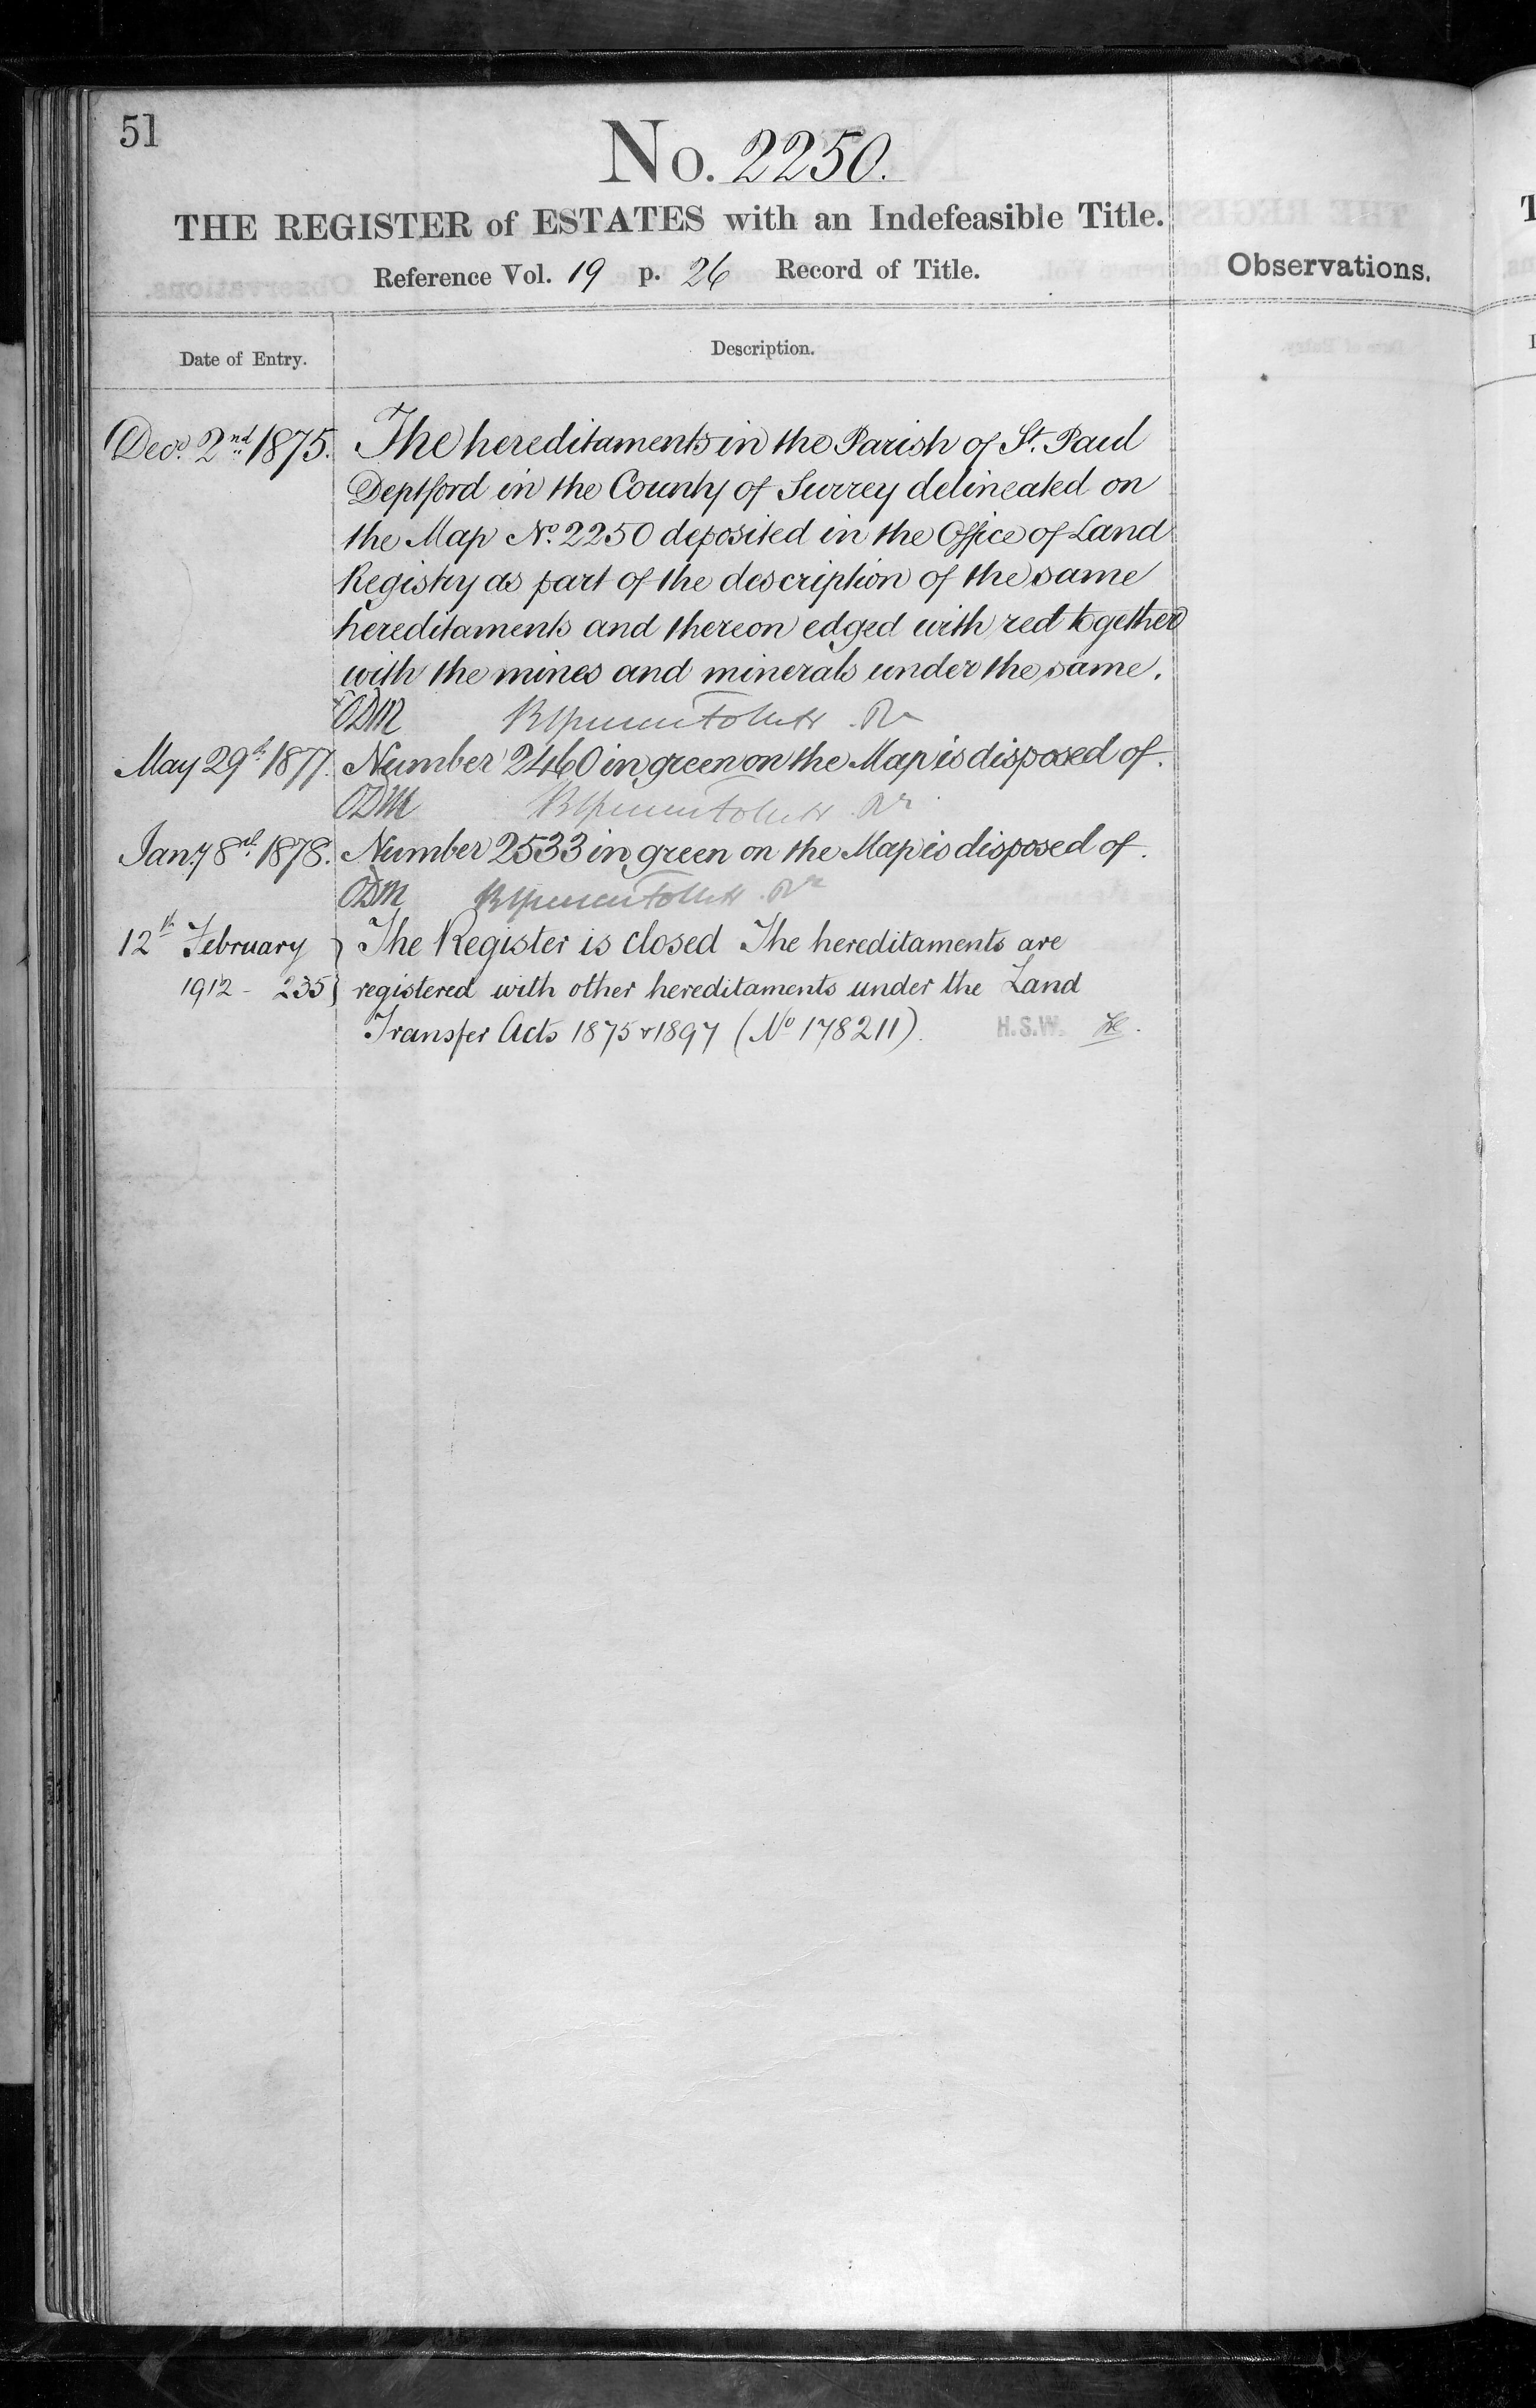 51
No. 2250.
THE REGISTER of ESTATES with an Indefeasible Title.
Reference Vol. 19 p. 26 Record of Title.
Observations.
Date of Entry.
Description.
Decr. 2nd 1875. The hereditaments in the Parish of St. Paul
Deptford in the County of Surrey delineated on
the Map No. 2250 deposited in the Office of Land
Registry as part of the description of the same
hereditaments and thereon edged with red together
with the mines and minerals under the same.
ODM
May 29th 1877. Number 2460 in green on the Map is disposed of.
ODM
Jany 8th 1878. Number 2533 in green on the Map is disposed of.
ODM
12th February } The Register is closed The hereditaments are
1912 - 235 } registered with other hereditaments under the Land
Transfer Acts 1875 & 1897 (No 178211). H.S.W.